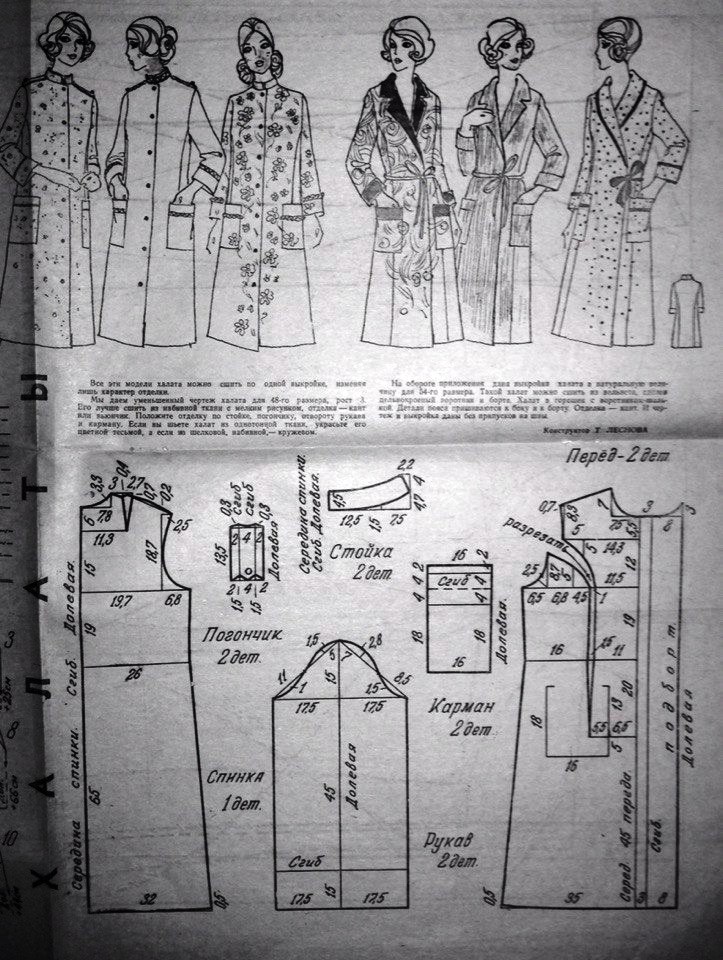 ХАЛАТЫ
Все эти модели халата можно сшить по одной выкройке, изменяя
лишь характер отделки.
Мы даем уменьшенный чертеж халата для 48-го размера, рост 3.
Его лучше сшить из набивной ткани с мелким рисунком, отделка — кант
или вьюнчик. Положите отделку по стойке, погончику, отвороту рукава
и карману. Если вы шьете халат из однотонной ткани, украсьте его
цветной тесьмой, а если из шелковой, набивной,— кружевом.
На обороте приложения дана выкройка халата в натуральную вели-
чину для 54-го размера. Такой халат можно сшить из вельвета, сделав
цельнокроеный воротник и борта. Халат в горошек с воротником-шаль-
кой. Детали пояса пришиваются к боку и к борту. Отделка — кант.
теж и выкройка даны без припусков на швы.
Конструктор Т. ЛЕСНОВА
Перёд-2 дет.
3,3 3 0,4 2,7 0,7 0,2
6 7,8
11,3
2,5
15
18,7
19,7 6,8
19
26
65
32
0,5
Середина спинки. Сгиб. Долевая.
Спинка
1 дет.
0,3 Сгиб Сгиб 0,3
2 4 2
13,5
Долевая
2 4 2
1,5 1,5
Погончик
2 дет.
Середина спинки.
Сгиб. Долевая.
2,2
4
4,5
4,7
12,5 15 7,5
Стойка
2 дет.
16
2
4 Сгиб 4
4 4
18 18
16
Долевая.
Карман
2 дет.
1,5 6 7 2,8
11 1 15 1,5 8,5
17,5 17,5
45
Долевая
Сгиб
15
17,5 17,5
Рукав
2 дет.
0,7 8,5 1 3 3
5 7,5 5,5 8
разрезать
5 14,3
12
2,5 8,7 5
11,5
6,5 6,8 4,5 1
19
16 1,5 11
18 13 20
5,5 6,5
16 5
подборт.
Долевая
Серед. 45 переда
Сгиб.
0,5 35 8